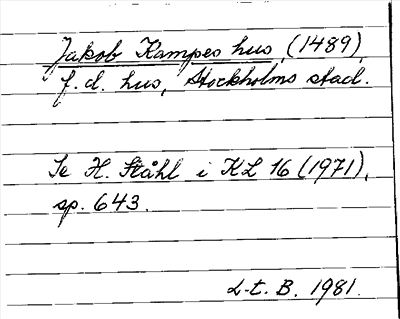 Jakob Kampes hus, (1489),
f.d. hus, Stockholms stad.
Se H. Ståhl i KL 16 (1971),
sp. 643.
L-t. B. 1981.